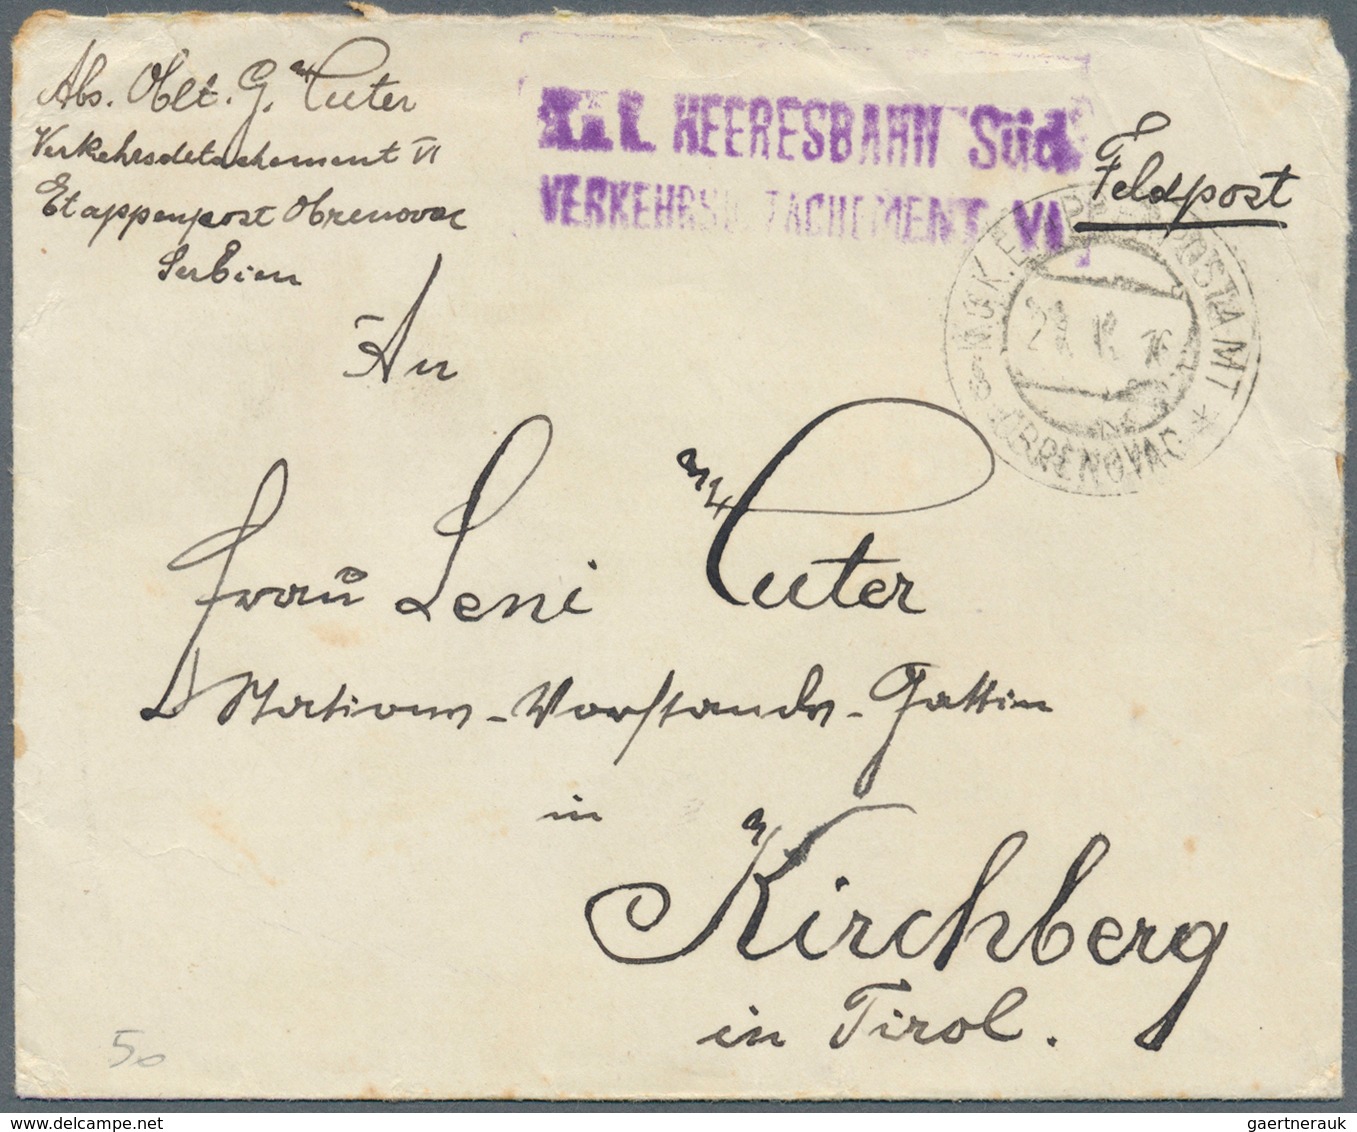 Abs. Oblt. G. Tuter
Verkehrsdetachement VI
Etappenpost Obrenovac
Serbien
HEERESBAHN Süd
VERKEHRSDETACHEMENT VI
Feldpost
M.u.K. ETAPPENPOSTAMT
OBRENOVAC
An
Frau Leni Tuter
Stations-Vorstands-Gattin
in
Kirchberg
in Tirol.
50
gaertnerauk